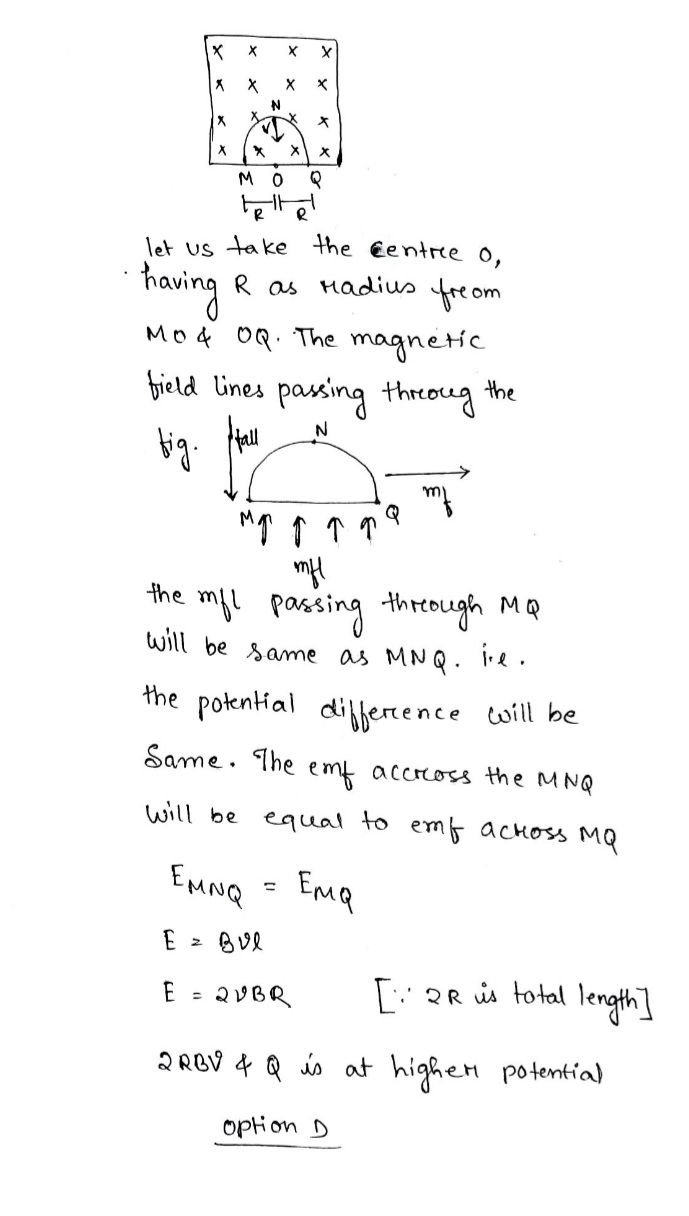 x x x x
x x x x
N
x x x x
V
x x x x
M O Q
R R
let us take the centre o,
having R as radius from
MO & OQ. The magnetic
field lines passing throug the
fig. fall N
mf
M Q
mfl
the mfl passing through MQ
will be same as MNQ. i.e.
the potential difference will be
Same. The emf accross the MNQ
will be equal to emf across MQ
E_MNQ = E_MQ
E = Bvl
E = 2VBR [∵ 2R is total length]
2RBV & Q is at higher potential
option D